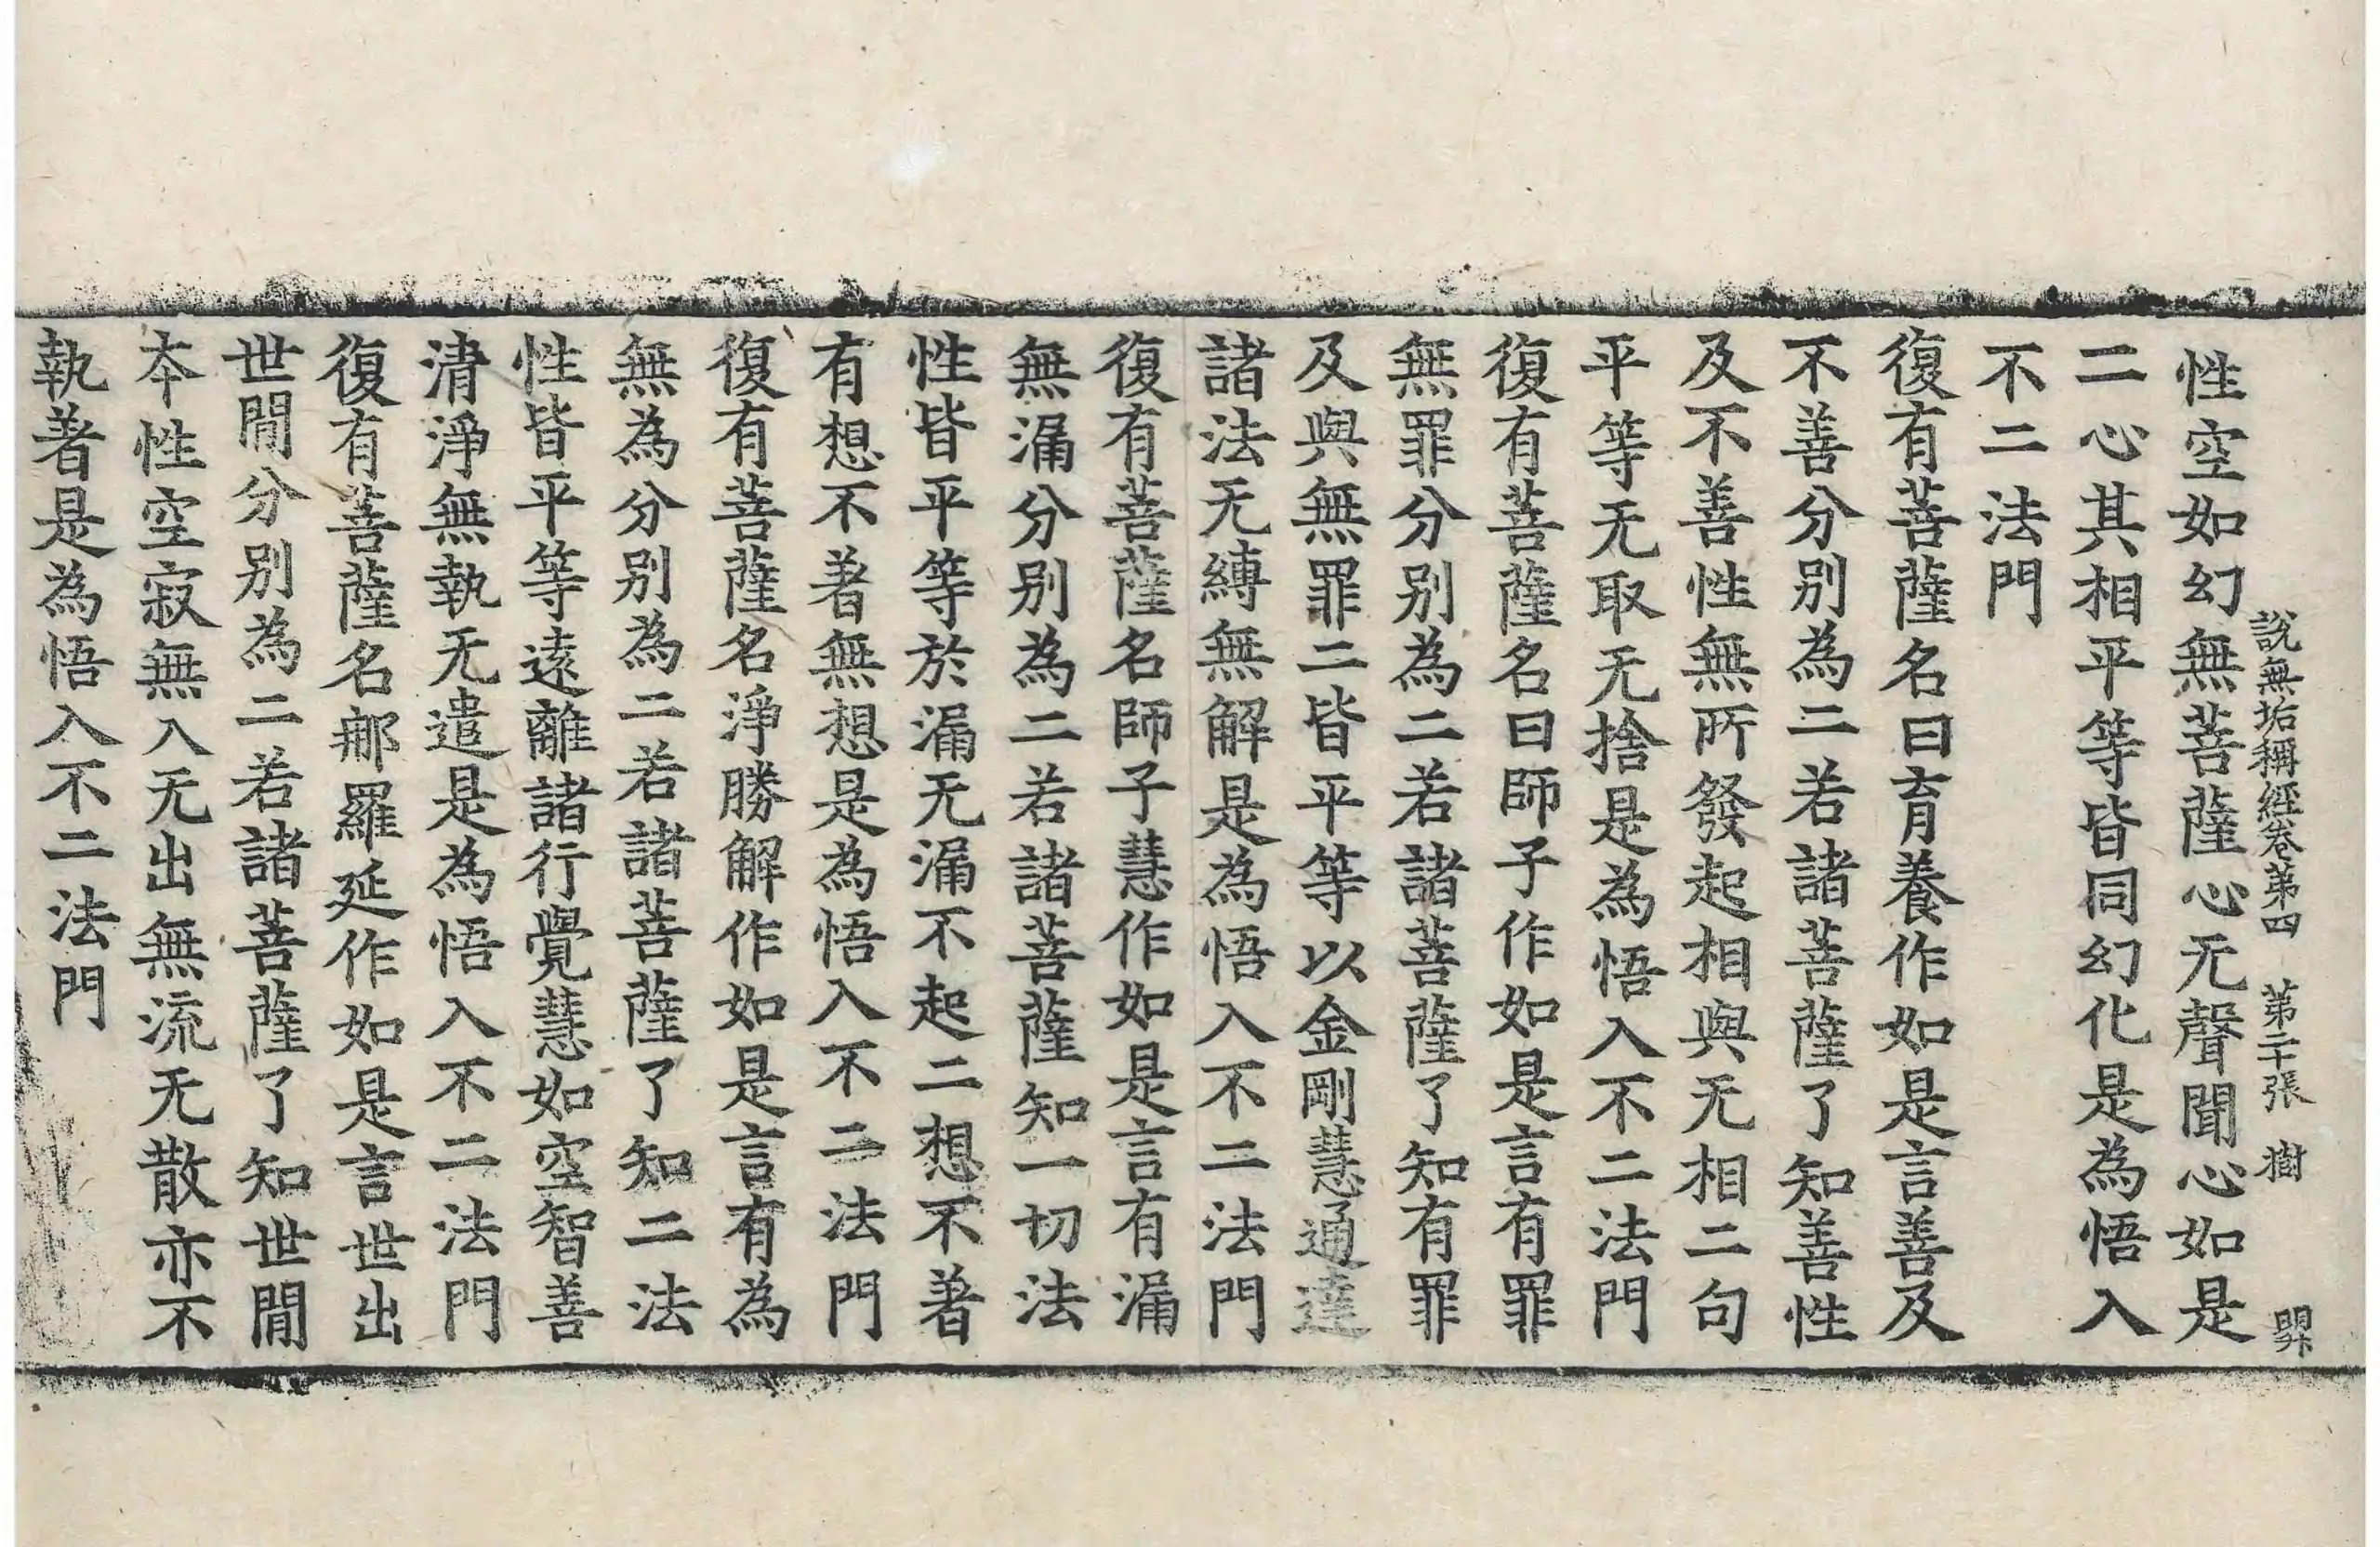 說無垢稱經卷第四 第二十張 樹
性空如幻無菩薩心无聲聞心如是
二心其相平等皆同幻化是為悟入
不二法門
復有菩薩名曰育養作如是言善及
不善分別為二若諸菩薩了知善性
及不善性無所發起相與无相二句
平等无取无捨是為悟入不二法門
復有菩薩名曰師子作如是言有罪
無罪分別為二若諸菩薩了知有罪
及與無罪二皆平等以金剛慧通達
諸法无縛無解是為悟入不二法門
復有菩薩名師子慧作如是言有漏
無漏分別為二若諸菩薩知一切法
性皆平等於漏无漏不起二想不著
有想不著無想是為悟入不二法門
復有菩薩名淨勝解作如是言有為
無為分別為二若諸菩薩了知二法
性皆平等遠離諸行覺慧如空智善
清淨無執无遣是為悟入不二法門
復有菩薩名那羅延作如是言世出
世間分別為二若諸菩薩了知世間
本性空寂無入无出無流无散亦不
執著是為悟入不二法門